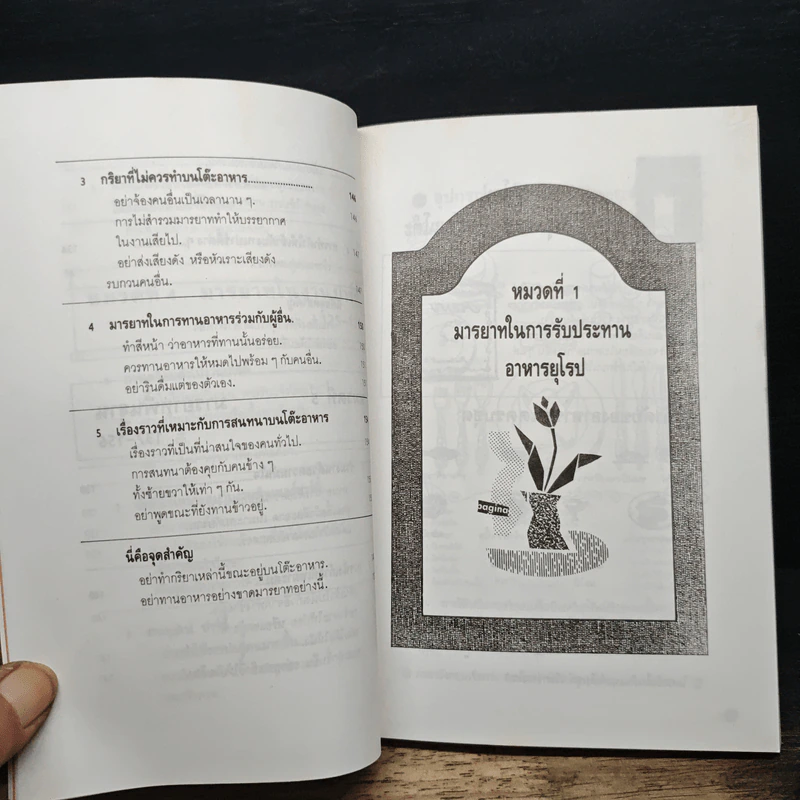 3 กริยาที่ไม่ควรทำบนโต๊ะอาหาร........................ 146
อย่าจ้องคนอื่นเป็นเวลานาน ๆ. 146
การไม่สำรวมมารยาททำให้บรรยากาศ
ในงานเสียไป. 147
อย่าส่งเสียงดัง หรือหัวเราะเสียงดัง
รบกวนคนอื่น.
4 มารยาทในการทานอาหารร่วมกับผู้อื่น. 150
ทำสีหน้า ว่าอาหารที่ทานนั้นอร่อย.
ควรทานอาหารให้หมดไปพร้อม ๆ กับคนอื่น.
อย่ารินดื่มแต่ของตัวเอง.
5 เรื่องราวที่เหมาะกับการสนทนาบนโต๊ะอาหาร
เรื่องราวที่เป็นที่น่าสนใจของคนทั่วไป.
การสนทนาต้องคุยกับคนข้าง ๆ
ทั้งซ้ายขวาให้เท่า ๆ กัน.
อย่าพูดขณะที่ยังทานข้าวอยู่.
นี่คือจุดสำคัญ
อย่าทำกริยาเหล่านี้ขณะอยู่บนโต๊ะอาหาร.
อย่าทานอาหารอย่างขาดมารยาทอย่างนี้.
หมวดที่ 1
มารยาทในการรับประทาน
อาหารยุโรป
pagina